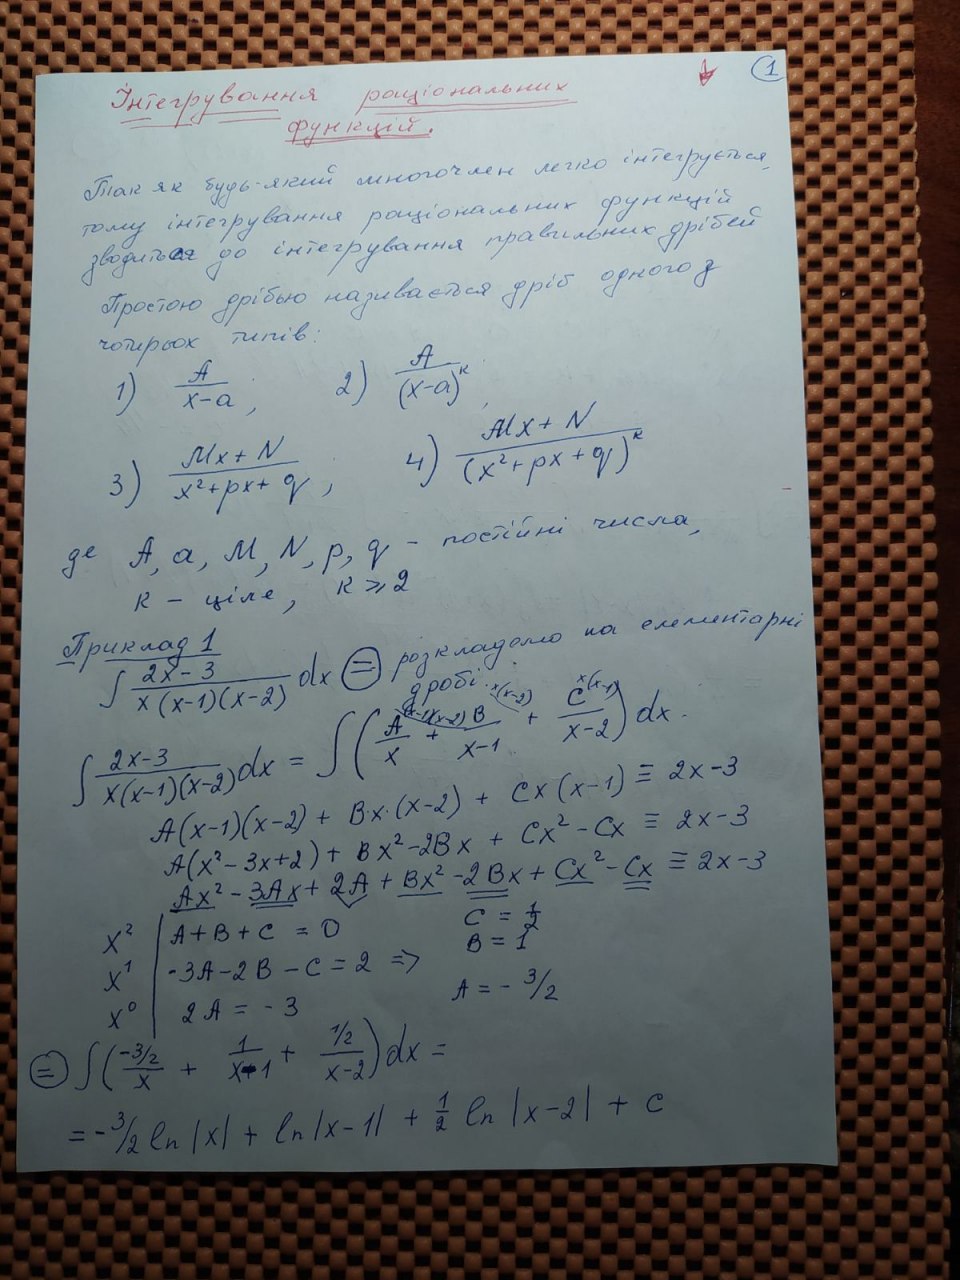 1
Інтегрування раціональних
функцій.
Так як будь-який многочлен легко інтегрується,
тому інтегрування раціональних функцій
зводиться до інтегрування правильних дрібей
Простою дрібью називається дріб одного з
чотирьох типів:
1) A/(x-a), 2) A/(x-a)^k,
3) (Mx+N)/(x²+px+q), 4) (Mx+N)/(x²+px+q)^k
де A, a, M, N, p, q - постійні числа,
к - ціле, к ⩾ 2
Приклад 1
∫ (2x-3)/(x(x-1)(x-2)) dx ⊜ розкладемо на елементарні
дробі.
∫ (2x-3)/(x(x-1)(x-2)) dx = ∫ (A^{(x-1)(x-2)}/x + B^{x(x-2)}/(x-1) + C^{x(x-1)}/(x-2)) dx.
A(x-1)(x-2) + B·x·(x-2) + Cx(x-1) ≡ 2x-3
A(x²-3x+2) + Bx²-2Bx + Cx²-Cx ≡ 2x-3
Ax²-3Ax+2A+Bx²-2Bx+Cx²-Cx ≡ 2x-3
x² | A+B+C = 0 C = 1/2
x¹ | -3A-2B-C=2 => B = 1
x⁰ | 2A = -3 A = - 3/2
⊜ ∫ ((-3/2)/x + 1/(x-1) + (1/2)/(x-2)) dx =
= -3/2 ln|x| + ln|x-1| + 1/2 ln|x-2| + C